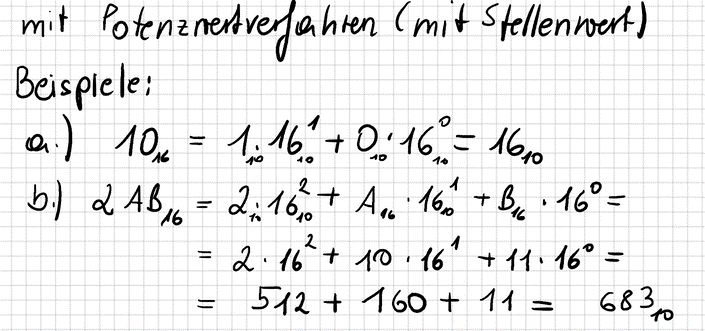 mit Potenzwertverfahren (mit Stellenwert)
Beispiele:
a.) 10₁₆ = 1₁₀·16₁₀¹ + 0₁₀·16₁₀⁰ = 16₁₀
b.) 2AB₁₆ = 2₁₀·16₁₀² + A₁₆·16₁₀¹ + B₁₆·16⁰ =
= 2·16² + 10·16¹ + 11·16⁰ =
= 512 + 160 + 11 = 683₁₀